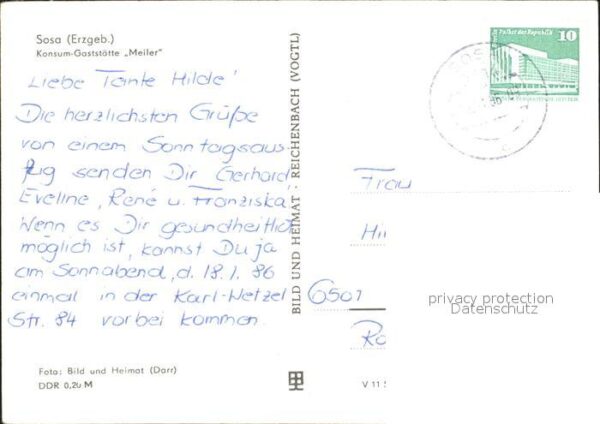 Sosa (Erzgeb.)
Konsum-Gaststätte „Meiler"
Liebe Tante Hilde!
Die herzlichsten Grüße
von einem Sonntagsaus
flug senden Dir Gerhard,
Eveline, René u. Franziska.
Wenn es Dir gesundheitlich
möglich ist, kannst Du ja
am Sonnabend, d. 18.1.86
einmal in der Karl-Wetzel
Str. 84 vorbei kommen.
Foto: Bild und Heimat (Darr)
DDR 0,20 M
BILD UND HEIMAT · REICHENBACH (VOGTL)
Palast der Republik
10
SOSA
Frau
6501
privacy protection
Datenschutz
V 11